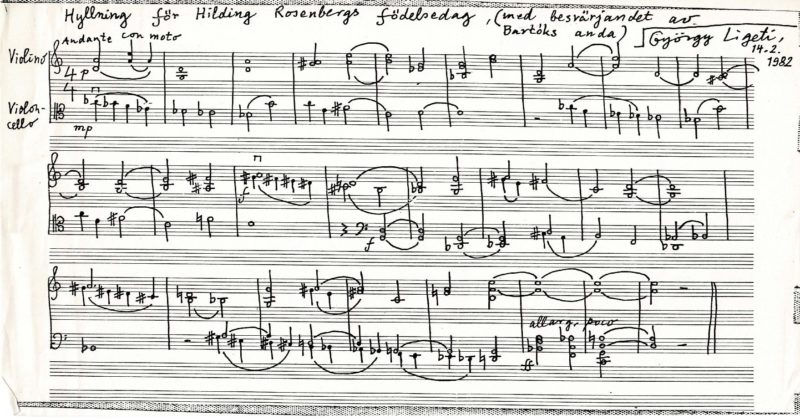 Hyllning för Hilding Rosenbergs födelsedag, (med besvärjandet av
Bartóks anda)
György Ligeti,
14.2.
1982
Andante con moto
Violino
p
Violon-
cello
mp
f
f
allarg. poco
ff